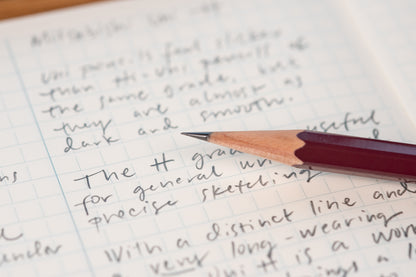 Mitsubishi Uni
Uni pencils feel slicker
than Hi-Uni pencils of
the same grade, but
they are almost as
dark and smooth.
The H grade useful
for general
precise sketching
With a distinct line and
very long-wearing
H is a
ns
under